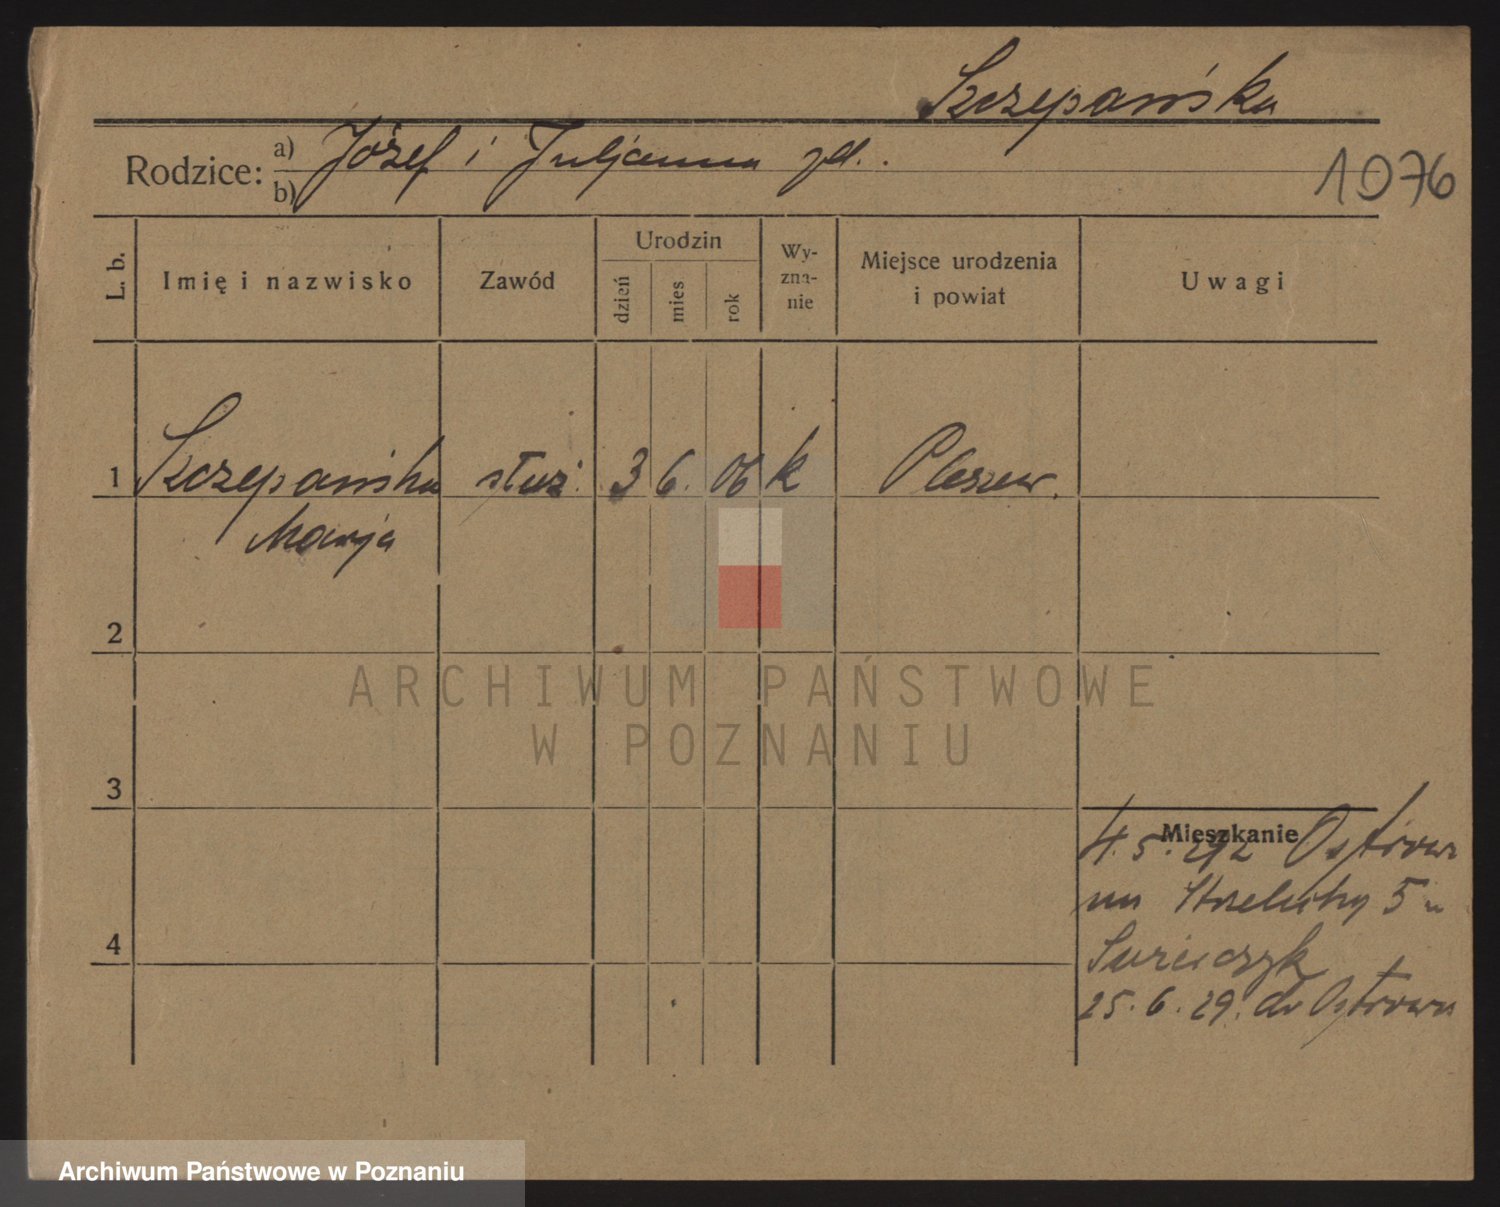 Szczepańska
Rodzice: a) Józef i Juljanna
b)
1076
L. b.
Imię i nazwisko
Zawód
Urodzin
dzień
mies
rok
Wy-
zna-
nie
Miejsce urodzenia
i powiat
Uwagi
1 Szczepańska służ. 3 6. 06 k Pleszew.
Marja
2
3
4
Mieszkanie
4. 5. Ostrowa
5
25. 6. 29. do Ostrowa
ARCHIWUM PAŃSTWOWE
W POZNANIU
Archiwum Państwowe w Poznaniu